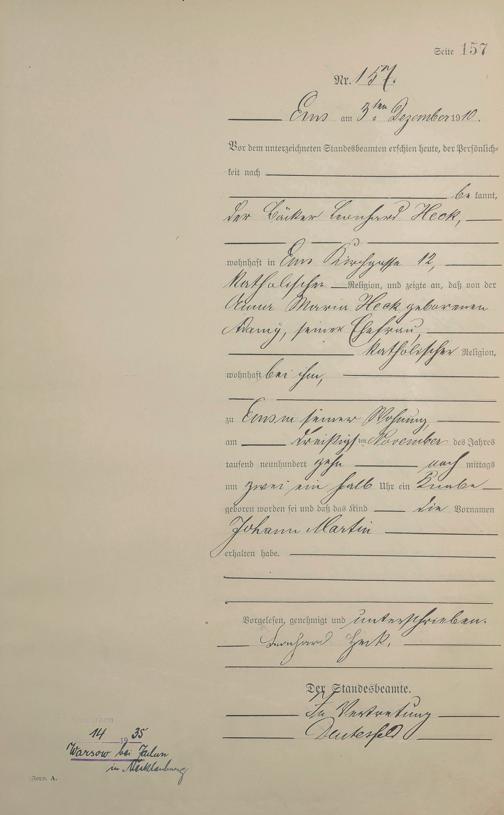 Seite 157
Nr. 157.
Ems am 3ten Dezember 1910.
Vor dem unterzeichneten Standesbeamten erschien heute, der Persönlich-
keit nach
be kannt,
der Bäcker Leonhard Heck,
wohnhaft in Ems Kirchgasse 12,
katholischer Religion, und zeigte an, daß von der
Anna Maria Heck geborenen
seiner Ehefrau,
katholischer Religion,
wohnhaft bei ihm,
zu Ems in seiner Wohnung,
am dreißigsten November des Jahres
tausend neunhundert zehn nach mittags
um zwei ein halb Uhr ein Knabe
geboren worden sei und daß das Kind die Vornamen
Johann Martin
erhalten habe.
Vorgelesen, genehmigt und unterschrieben.
Leonhard Heck.
Der Standesbeamte.
In Vertretung
14 19 35
Warsow bei
in Mecklenburg
Form. A.